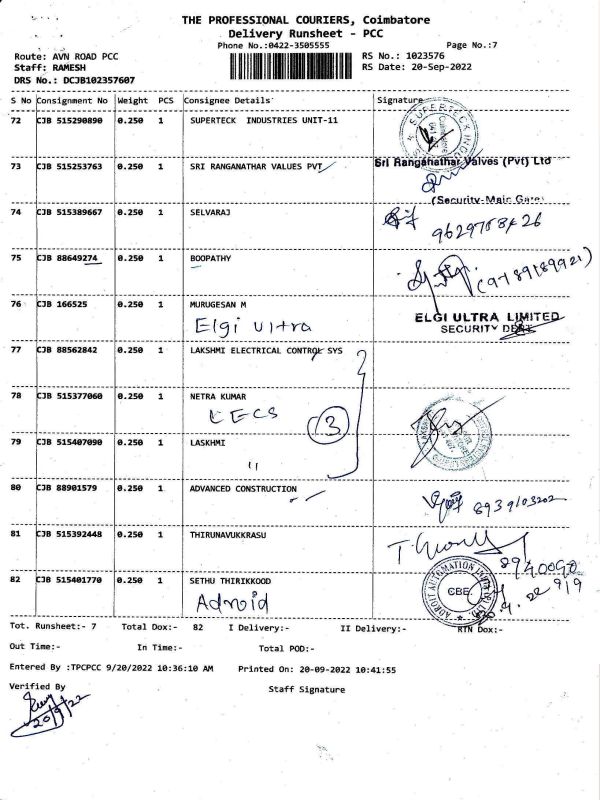 THE PROFESSIONAL COURIERS, Coimbatore
Delivery Runsheet - PCC
Phone No.:0422-3505555 Page No.:7
Route: AVN ROAD PCC RS No.: 1023576
Staff: RAMESH RS Date: 20-Sep-2022
DRS No.: DCJB102357607
S No Consignment No Weight PCS Consignee Details Signature
72 CJB 515290890 0.250 1 SUPERTECK INDUSTRIES UNIT-11
73 CJB 515253763 0.250 1 SRI RANGANATHAR VALUES PVT Sri Ranganathar Valves (Pvt) Ltd
(Security-Main Gate)
74 CJB 515389667 0.250 1 SELVARAJ
75 CJB 88649274 0.250 1 BOOPATHY
(9789189921)
76 CJB 166525 0.250 1 MURUGESAN M
Elgi Ultra
ELGI ULTRA LIMITED
SECURITY DEPT
77 CJB 88562842 0.250 1 LAKSHMI ELECTRICAL CONTROL SYS
78 CJB 515377060 0.250 1 NETRA KUMAR
LECS
3
79 CJB 515407090 0.250 1 LASKHMI
"
80 CJB 88901579 0.250 1 ADVANCED CONSTRUCTION
8939103202
81 CJB 515392448 0.250 1 THIRUNAVUKKRASU
82 CJB 515401770 0.250 1 SETHU THIRIKKOOD
Adroid
CBE
Tot. Runsheet:- 7 Total Dox:- 82 I Delivery:- II Delivery:- RTN Dox:-
Out Time:- In Time:- Total POD:-
Entered By :TPCPCC 9/20/2022 10:36:10 AM Printed On: 20-09-2022 10:41:55
Verified By Staff Signature
20/9/22